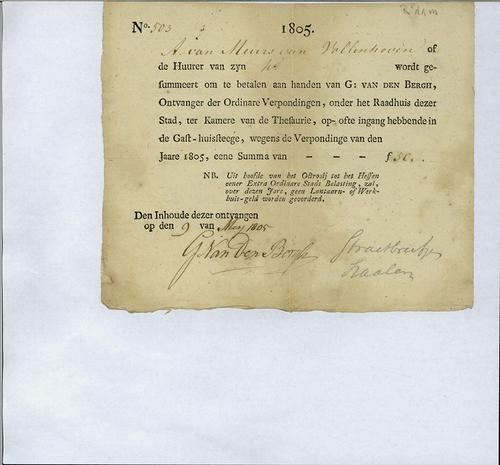 N⁰. 503 1805.
A van Meurs van Vollenhoven of
de Huurer van zyn wordt ge-
summeert om te betalen aan handen van G: VAN DEN BERGH,
Ontvanger der Ordinare Verpondingen, onder het Raadhuis dezer
Stad, ter Kamere van de Thesaurie, op-ofte ingang hebbende in
de Gast-huissteege, wegens de Verpondinge van den
Jaare 1805, eene Summa van - - - ƒ 50.
NB. Uit hoofde van het Octrooij tot het Heffen
eener Extra Ordinare Stads Belasting, zal,
over dezen Jare, geen Lantaarn- of Werk-
huis-geld worden gevorderd.
Den Inhoude dezer ontvangen
op den 9 van Mey 1805
G. Van Den Bergh